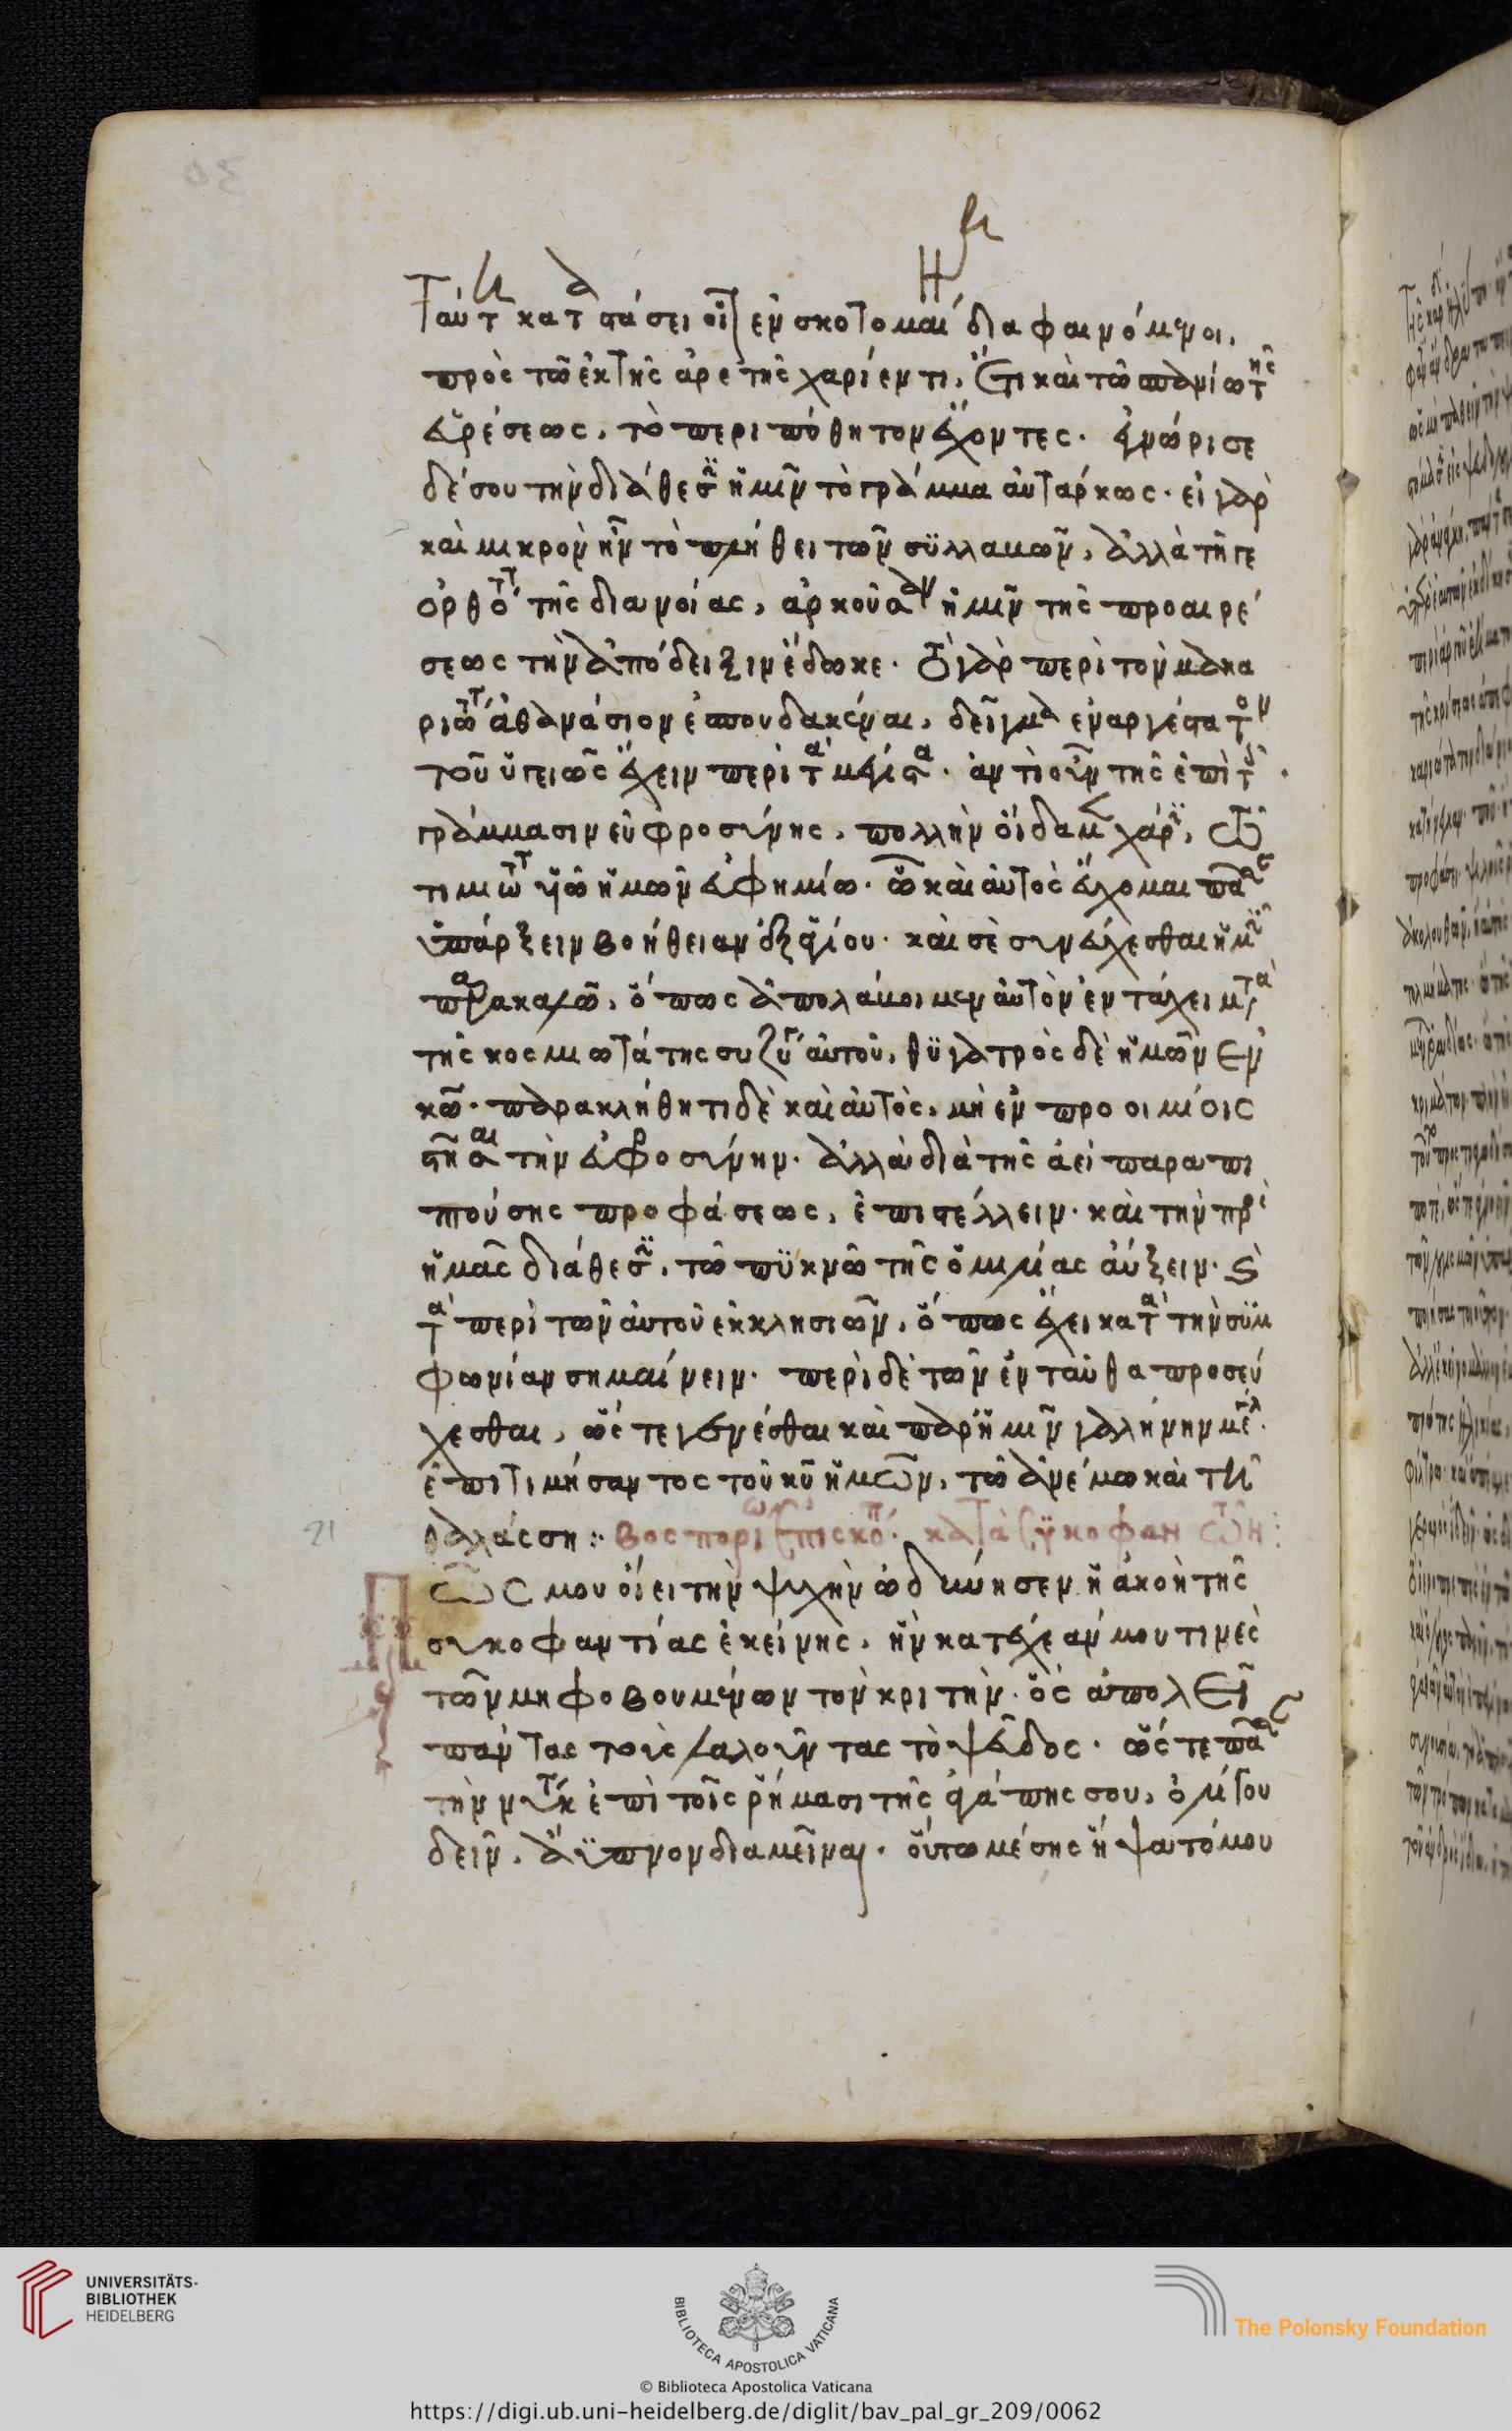 ταύτη καταστάσει οἱ ἐν σκοτομαίνῃ διαφαινόμενοι,
πρὸς τῶ ἐκ τῆς ἀρετῆς χαρίεντι, ἔτι καὶ τῶ σπανίω τῆς
εὑρέσεως, τὸ περιπόθητον ἔχοντες. ἐγνώρισε
δέ σου τὴν διάθεσιν ἡμῖν τὸ γράμμα αὐτάρκως. εἰ γὰρ
καὶ μικρὸν ἦν τὸ πλήθει τῶν συλλαβῶν, ἀλλὰ τῆ γε
ὀρθότητι τῆς διανοίας, ἀρκοῦσαν ἡμῖν τῆς προαιρέ
σεως τὴν ἀπόδειξιν ἔδωκε. τὸ γὰρ περὶ τὸν μακα
ριώτατον ἀθανάσιον ἐσπουδακέναι, δεῖγμα ἐναργέστατον
τοῦ ὑγιῶς ἔχειν περὶ τὰ μέγιστα. ἀντὶ οὖν τῆς ἐπὶ τοῖς
γράμμασιν εὐφροσύνης, πολλὴν οἴδαμεν χάριν, τῶ
τιμιωτάτω υἱῶ ἡμῶν εὐφημίω. ὧ καὶ αὐτὸς εὔχομαι πᾶσαν
ὑπάρξειν βοήθειαν ἐκ τοῦ ἁγίου. καὶ σὲ συνεύχεσθαι ἡμῖν
παρακαλῶ, ὅπως ἀπολάβοιμεν αὐτὸν ἐν τάχει μετὰ
τῆς κοσμιωτάτης συζύγου αὐτοῦ, θυγατρὸς δὲ ἡμῶν ἐν
κω. παρακλήθητι δὲ καὶ αὐτὸς, μὴ ἐν προοιμίοις
στῆσαι τὴν εὐφροσύνην. ἀλλὰ διὰ τῆς ἀεὶ παραπι
πτούσης προφάσεως, ἐπιστέλλειν. καὶ τὴν πρὸς
ἡμᾶς διάθεσιν, τῶ πυκνῶ τῆς ὁμιλίας αὔξειν. καὶ
τὰ περὶ τῶν αὐτοῦ ἐκκλησιῶν, ὅπως ἔχει κατὰ τὴν συμ
φωνίαν σημαίνειν. περὶ δὲ τῶν ἐνταῦθα προσεύ
χεσθαι, ὥστε γενέσθαι καὶ παρ' ἡμῖν γαλήνην μεγάλην
ἐπιτιμήσαντος τοῦ κυ ἡμῶν, τῶ ἀνέμω καὶ τῆ
θαλάσση :· βοσπορίω ἐπισκόπω. κατὰ συκοφαντῶν :
Πῶς μου οἴει τὴν ψυχὴν ὠδύνησεν ἡ ἀκοὴ τῆς
συκοφαντίας ἐκείνης, ἣν κατέχεάν μου τινὲς
τῶν μὴ φοβουμένων τὸν κριτὴν. ὃς ἀπολεῖ
πάντας τοὺς λαλοῦντας τὸ ψεῦδος. ὥστε πᾶσαν
τὴν νύκτα ἐπὶ τοῖς ῥήμασι τῆς ἀγάπης σου, ὀλίγου
δεῖν, ἄυπνον διαμεῖναι. οὕτω μέσης ἥψατό μου
21
UNIVERSITÄTS-
BIBLIOTHEK
HEIDELBERG
BIBLIOTECA APOSTOLICA VATICANA
The Polonsky Foundation
© Biblioteca Apostolica Vaticana
https://digi.ub.uni-heidelberg.de/diglit/bav_pal_gr_209/0062